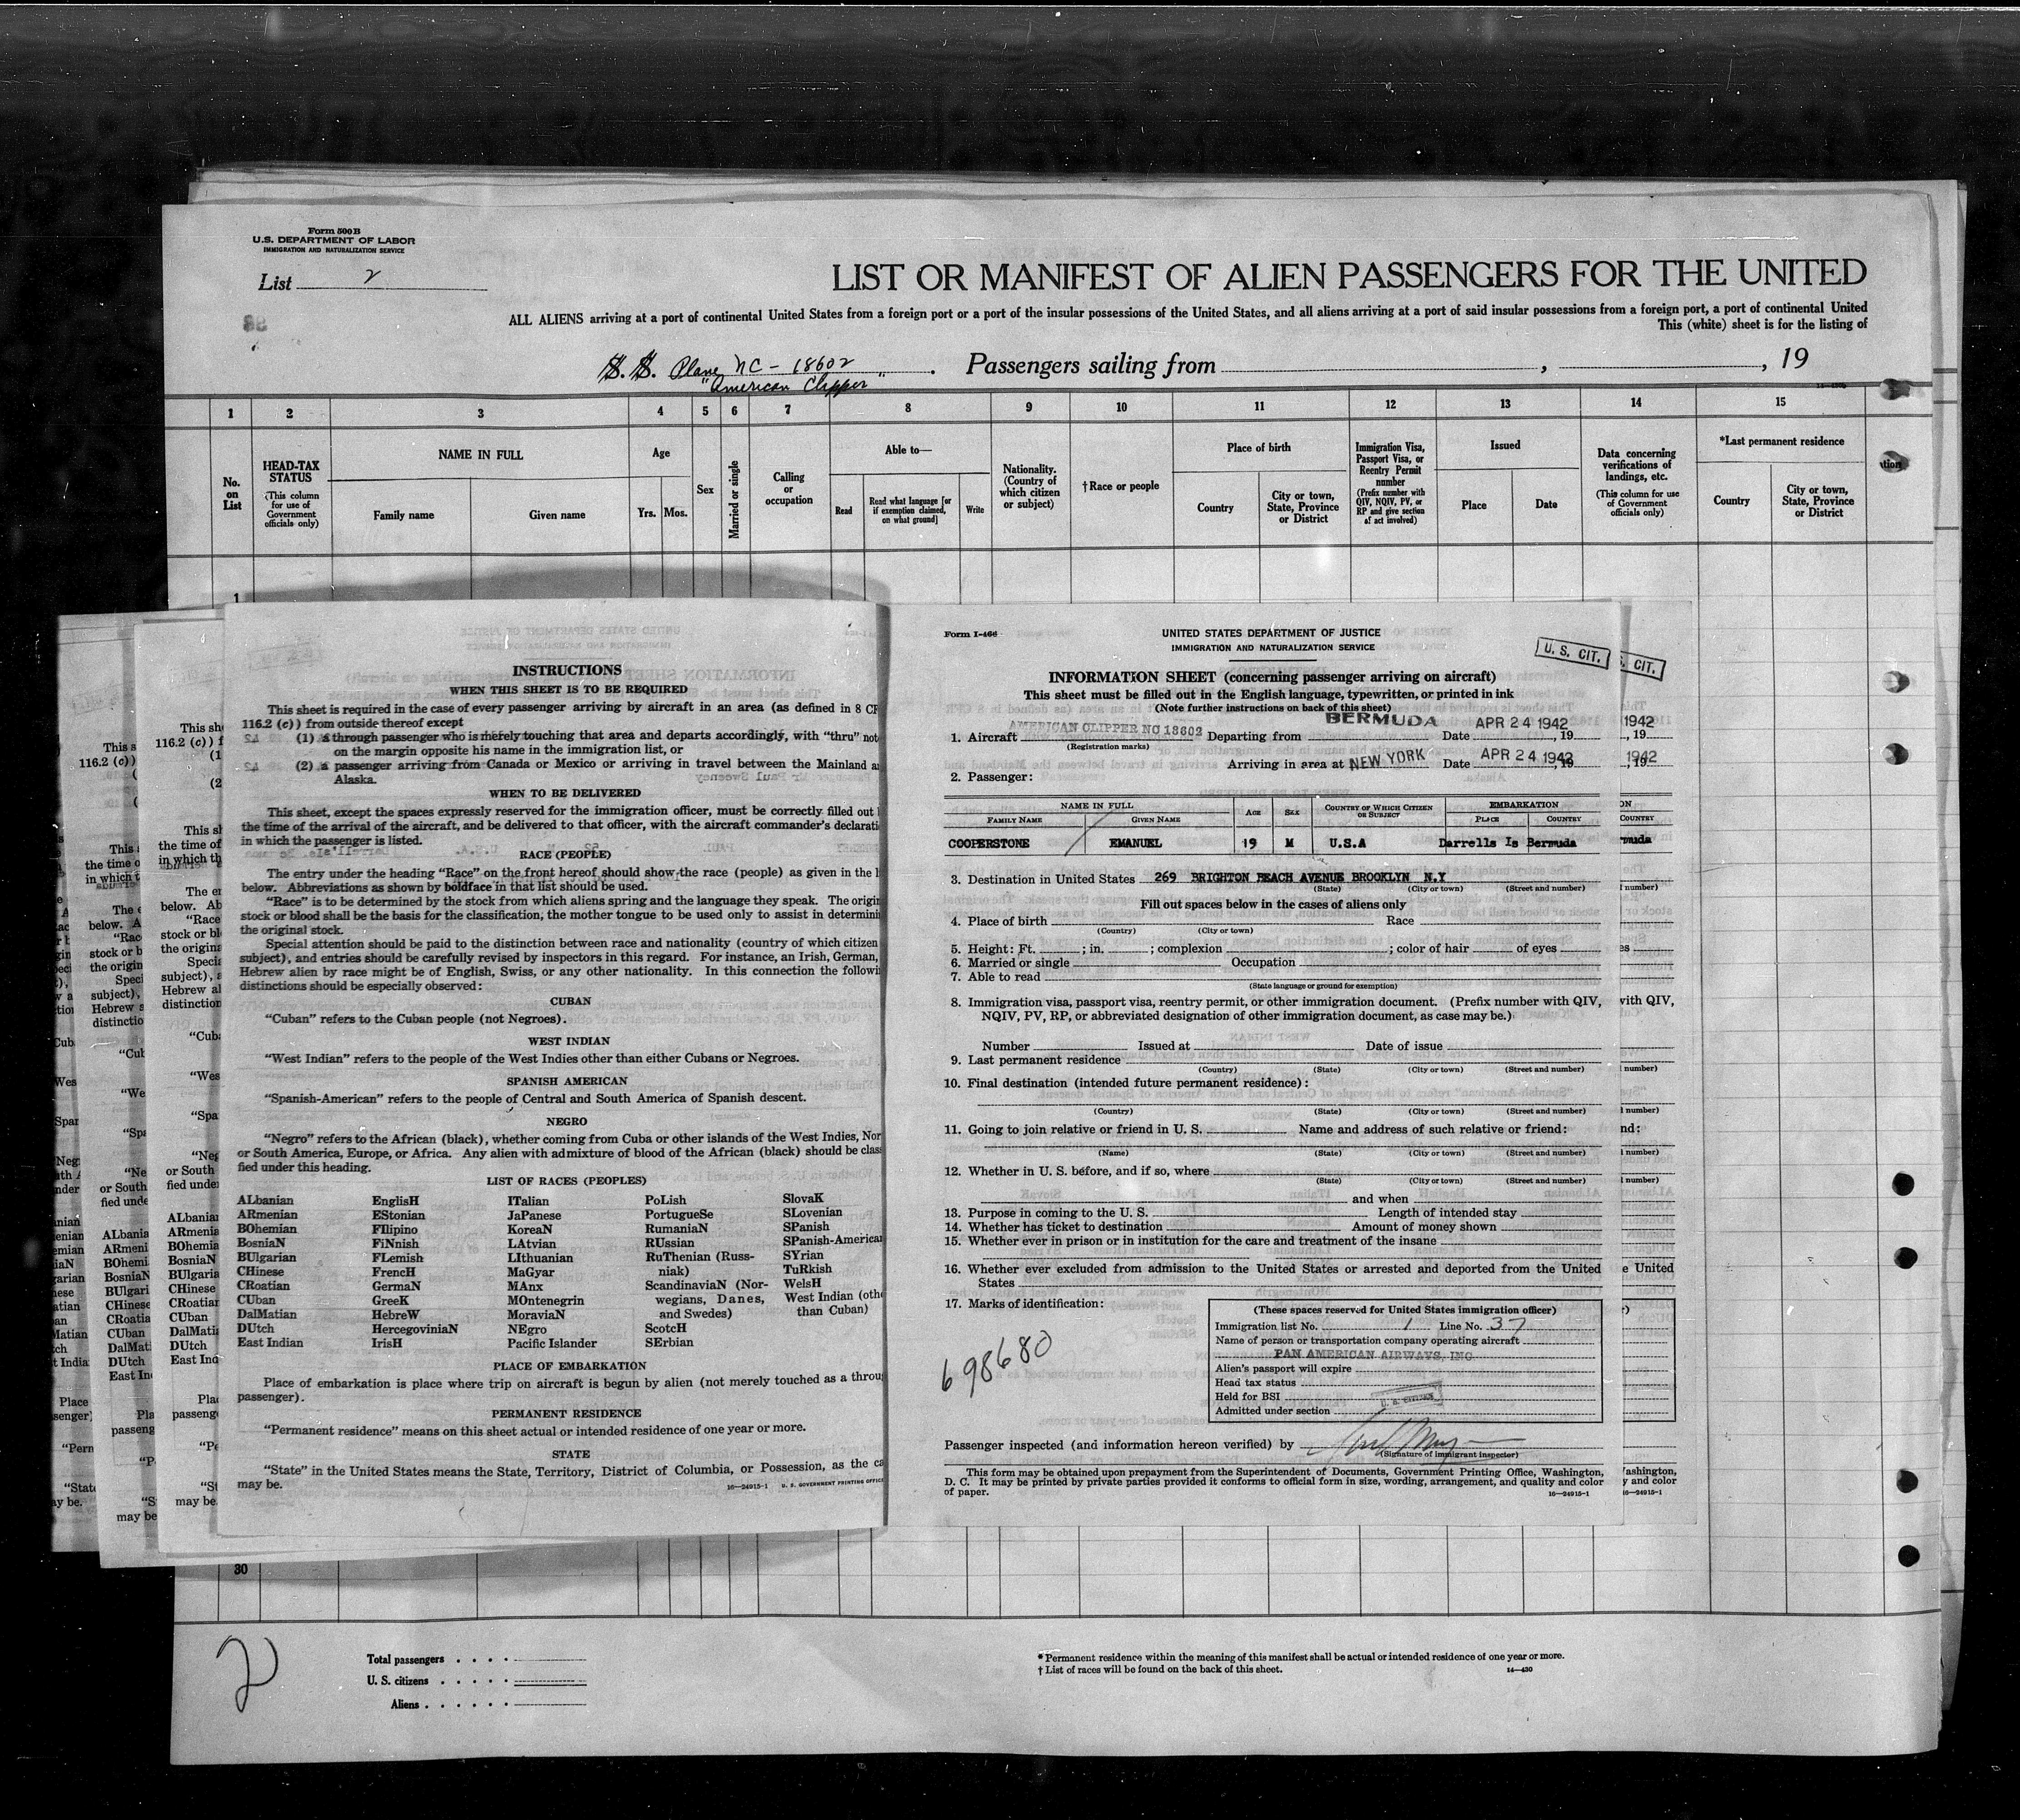 Form 500B
U.S. DEPARTMENT OF LABOR
IMMIGRATION AND NATURALIZATION SERVICE
List 2
LIST OR MANIFEST OF ALIEN PASSENGERS FOR THE UNITED
ALL ALIENS arriving at a port of continental United States from a foreign port or a port of the insular possessions of the United States, and all aliens arriving at a port of said insular possessions from a foreign port, a port of continental United
This (white) sheet is for the listing of
S. S. Plane NC-18602 . Passengers sailing from , , 19
"American Clipper"
1 2 3 4 5 6 7 8 9 10 11 12 13 14 15
No. on List
HEAD-TAX STATUS
(This column for use of Government officials only)
NAME IN FULL
Family name Given name
Age
Yrs. Mos.
Sex
Married or single
Calling or occupation
Able to—
Read
Read what language [or if exemption claimed, on what ground]
Write
Nationality. (Country of which citizen or subject)
†Race or people
Place of birth
Country
City or town, State, Province or District
Immigration Visa, Passport Visa, or Reentry Permit number
(Prefix number with QIV, NQIV, PV, or RP and give section of act involved)
Issued
Place Date
Data concerning verifications of landings, etc.
(This column for use of Government officials only)
*Last permanent residence
Country
City or town, State, Province or District
1
INSTRUCTIONS
WHEN THIS SHEET IS TO BE REQUIRED
This sheet is required in the case of every passenger arriving by aircraft in an area (as defined in 8 CF
116.2 (c)) from outside thereof except
(1) a through passenger who is merely touching that area and departs accordingly, with "thru" not
on the margin opposite his name in the immigration list, or
(2) a passenger arriving from Canada or Mexico or arriving in travel between the Mainland a
Alaska.
WHEN TO BE DELIVERED
This sheet, except the spaces expressly reserved for the immigration officer, must be correctly filled out
the time of the arrival of the aircraft, and be delivered to that officer, with the aircraft commander's declarati
in which the passenger is listed.
RACE (PEOPLE)
The entry under the heading "Race" on the front hereof should show the race (people) as given in the l
below. Abbreviations as shown by boldface in that list should be used.
"Race" is to be determined by the stock from which aliens spring and the language they speak. The origin
stock or blood shall be the basis for the classification, the mother tongue to be used only to assist in determini
the original stock.
Special attention should be paid to the distinction between race and nationality (country of which citizen
subject), and entries should be carefully revised by inspectors in this regard. For instance, an Irish, German,
Hebrew alien by race might be of English, Swiss, or any other nationality. In this connection the followi
distinctions should be especially observed:
CUBAN
"Cuban" refers to the Cuban people (not Negroes).
WEST INDIAN
"West Indian" refers to the people of the West Indies other than either Cubans or Negroes.
SPANISH AMERICAN
"Spanish-American" refers to the people of Central and South America of Spanish descent.
NEGRO
"Negro" refers to the African (black), whether coming from Cuba or other islands of the West Indies, Nor
or South America, Europe, or Africa. Any alien with admixture of blood of the African (black) should be clas
fied under this heading.
LIST OF RACES (PEOPLES)
ALbanian EnglisH ITalian PoLish SlovaK
ARmenian EStonian JaPanese PortugueSe SLovenian
BOhemian FIlipino KoreaN RumaniaN SPanish
BosniaN FiNnish LAtvian RUssian SPanish-America
BUlgarian FLemish LIthuanian RuThenian (Russ- SYrian
CHinese FrencH MaGyar niak) TuRkish
CRoatian GermaN MAnx ScandinaviaN (Nor- WelsH
CUban GreeK MOntenegrin wegians, Danes, West Indian (oth
DalMatian HebreW MoraviaN and Swedes) than Cuban)
DUtch HercegoviniaN NEgro ScotcH
East Indian IrisH Pacific Islander SErbian
PLACE OF EMBARKATION
Place of embarkation is place where trip on aircraft is begun by alien (not merely touched as a throu
passenger).
PERMANENT RESIDENCE
"Permanent residence" means on this sheet actual or intended residence of one year or more.
STATE
"State" in the United States means the State, Territory, District of Columbia, or Possession, as the ca
may be.
16—24915-1 U. S. GOVERNMENT PRINTING OFFICE
Form I-466
UNITED STATES DEPARTMENT OF JUSTICE
IMMIGRATION AND NATURALIZATION SERVICE
U. S. CIT.
INFORMATION SHEET (concerning passenger arriving on aircraft)
This sheet must be filled out in the English language, typewritten, or printed in ink
(Note further instructions on back of this sheet)
1. Aircraft AMERICAN CLIPPER NC 18602 Departing from BERMUDA Date APR 24 1942, 19
(Registration marks)
Arriving in area at NEW YORK Date APR 24 1942, 19
2. Passenger:
NAME IN FULL AGE SEX COUNTRY OF WHICH CITIZEN OR SUBJECT EMBARKATION
FAMILY NAME GIVEN NAME PLACE COUNTRY
COOPERSTONE EMANUEL 19 M U.S.A Darrells Is Bermuda
3. Destination in United States 269 BRIGHTON BEACH AVENUE BROOKLYN N.Y
(State) (City or town) (Street and number)
Fill out spaces below in the cases of aliens only
4. Place of birth Race
(Country) (City or town)
5. Height: Ft. ; in. ; complexion ; color of hair of eyes
6. Married or single Occupation
7. Able to read
(State language or ground for exemption)
8. Immigration visa, passport visa, reentry permit, or other immigration document. (Prefix number with QIV,
NQIV, PV, RP, or abbreviated designation of other immigration document, as case may be.)
Number Issued at Date of issue
9. Last permanent residence
(Country) (State) (City or town) (Street and number)
10. Final destination (intended future permanent residence):
(Country) (State) (City or town) (Street and number)
11. Going to join relative or friend in U. S. Name and address of such relative or friend:
(Name) (State) (City or town) (Street and number)
12. Whether in U. S. before, and if so, where
(State) (City or town) (Street and number)
and when
13. Purpose in coming to the U. S. Length of intended stay
14. Whether has ticket to destination Amount of money shown
15. Whether ever in prison or in institution for the care and treatment of the insane
16. Whether ever excluded from admission to the United States or arrested and deported from the United
States
17. Marks of identification:
698680
(These spaces reserved for United States immigration officer)
Immigration list No. 1 Line No. 37
Name of person or transportation company operating aircraft
PAN AMERICAN AIRWAYS, INC
Alien's passport will expire
Head tax status
Held for BSI
Admitted under section
Passenger inspected (and information hereon verified) by
(Signature of immigrant inspector)
This form may be obtained upon prepayment from the Superintendent of Documents, Government Printing Office, Washington,
D. C. It may be printed by private parties provided it conforms to official form in size, wording, arrangement, and quality and color
of paper.
16—24915-1
30
2
Total passengers
U. S. citizens
Aliens
* Permanent residence within the meaning of this manifest shall be actual or intended residence of one year or more.
† List of races will be found on the back of this sheet.
14—430